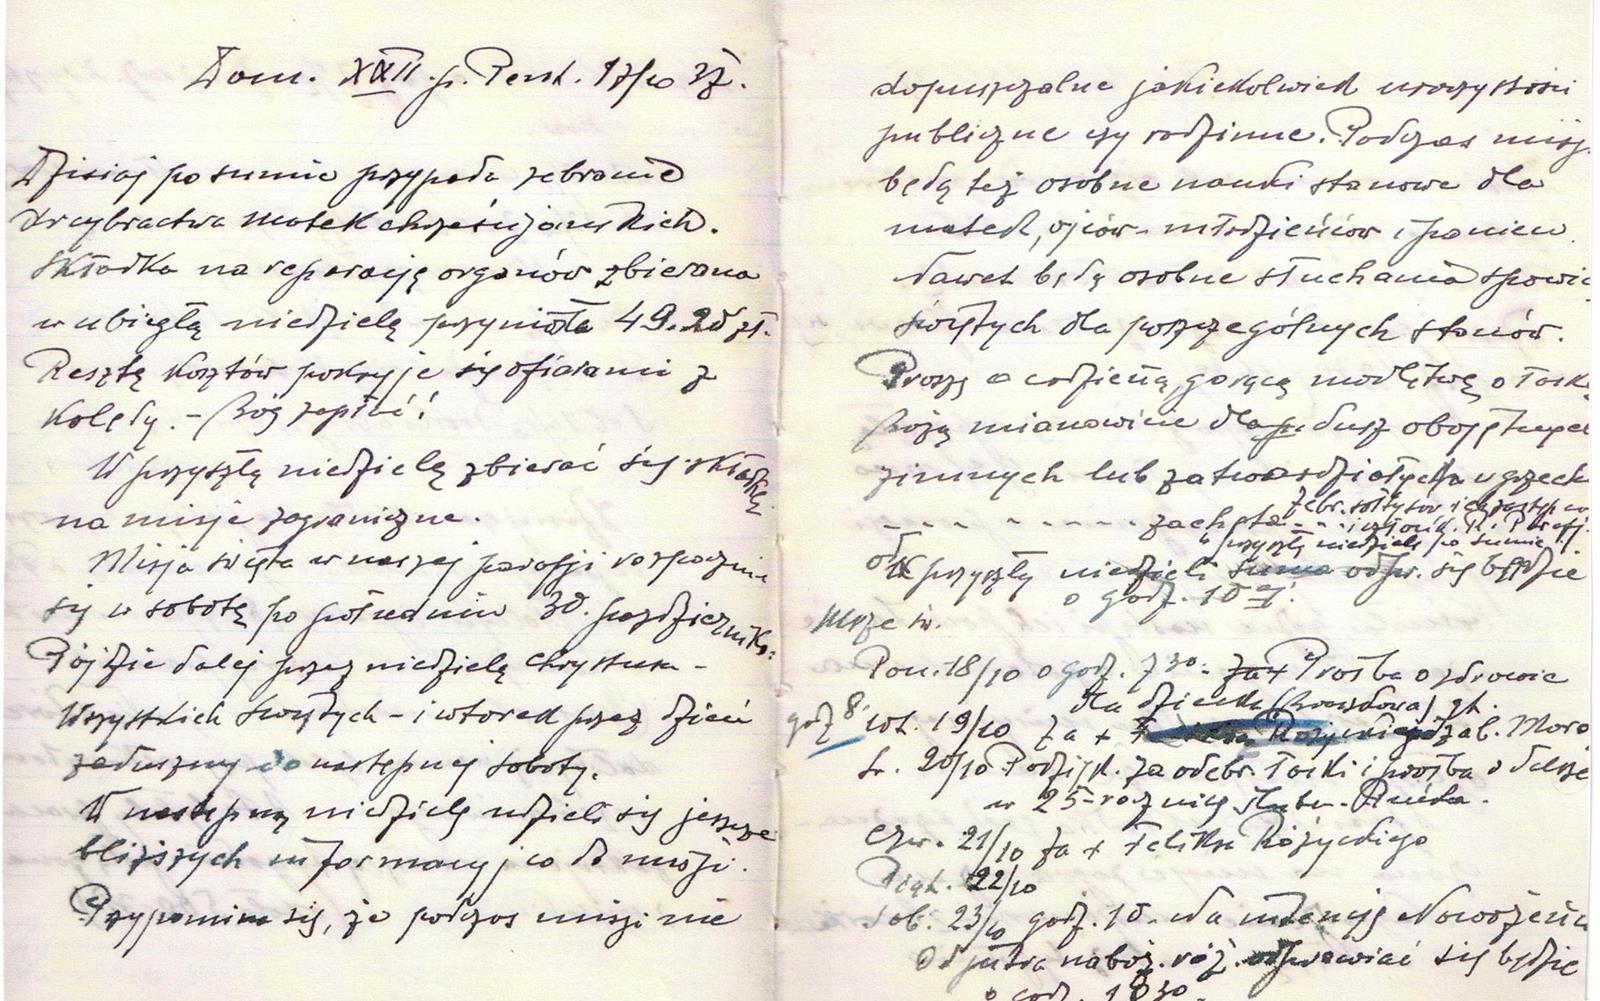 Dom. XXII p. Pent. 17/10 37.
Dzisiaj po sumie przypada zebranie
Arcybractwa Matek chrześcijańskich.
Składka na reparację organów zbierana
w ubiegłą niedzielę przyniosła 49.20 zł.
Resztę kosztów pokryje się ofiarami z
Kolędy. - Bóg zapłać!
W przyszłą niedzielę zbierać się składkę
na misje zagraniczne.
Misja święta w naszej parafji rozpocznie
się w sobotę po południu 30. października.
Pójdzie dalej przez niedzielę Chrystusa -
Wszystkich Świętych - i wtorek przez dzień
zaduszny do następnej soboty.
W następną niedzielę udzieli się jeszcze
bliższych informacyj co do misji.
Przypomina się, że podczas misji nie
dopuszczalne jakiekolwiek uroczystości
publiczne czy rodzinne. Podczas misji
będą też osobne nauki stanowe dla
matek, ojców - młodzieńców i panien.
Nawet będą osobne słuchania spowie
świętych dla poszczególnych stanów.
Proszę o codzienną, gorącą modlitwę o łask
Bożą mianowicie dla dusz obojętnych
zimnych lub zatwardziałych w grzech
zachęta
zebr. sołtysów i ich zastępców
i członk. R. Paraf.
w przyszłą niedzielę po sumie.
od przyszłej niedzieli suma odpr. się będzie
o godz. 10
Msze św.
Pon. 18/10 o godz. 7 30. Prośba o zdrowie
dla dziecka
godz 8. wt. 19/10 za +
śr. 20/10 Podzięk. za odebr. łaski i prośba o dalsze
w 25-rocznicę ślubu
czw. 21/10 za + Feliksa Różyckiego
Piąt. 22/10
Sob. 23/10 godz. 10. na intencję Nowożeńców
Od jutra naboż. róż. odprawiać się będzie
o godz. 1830.